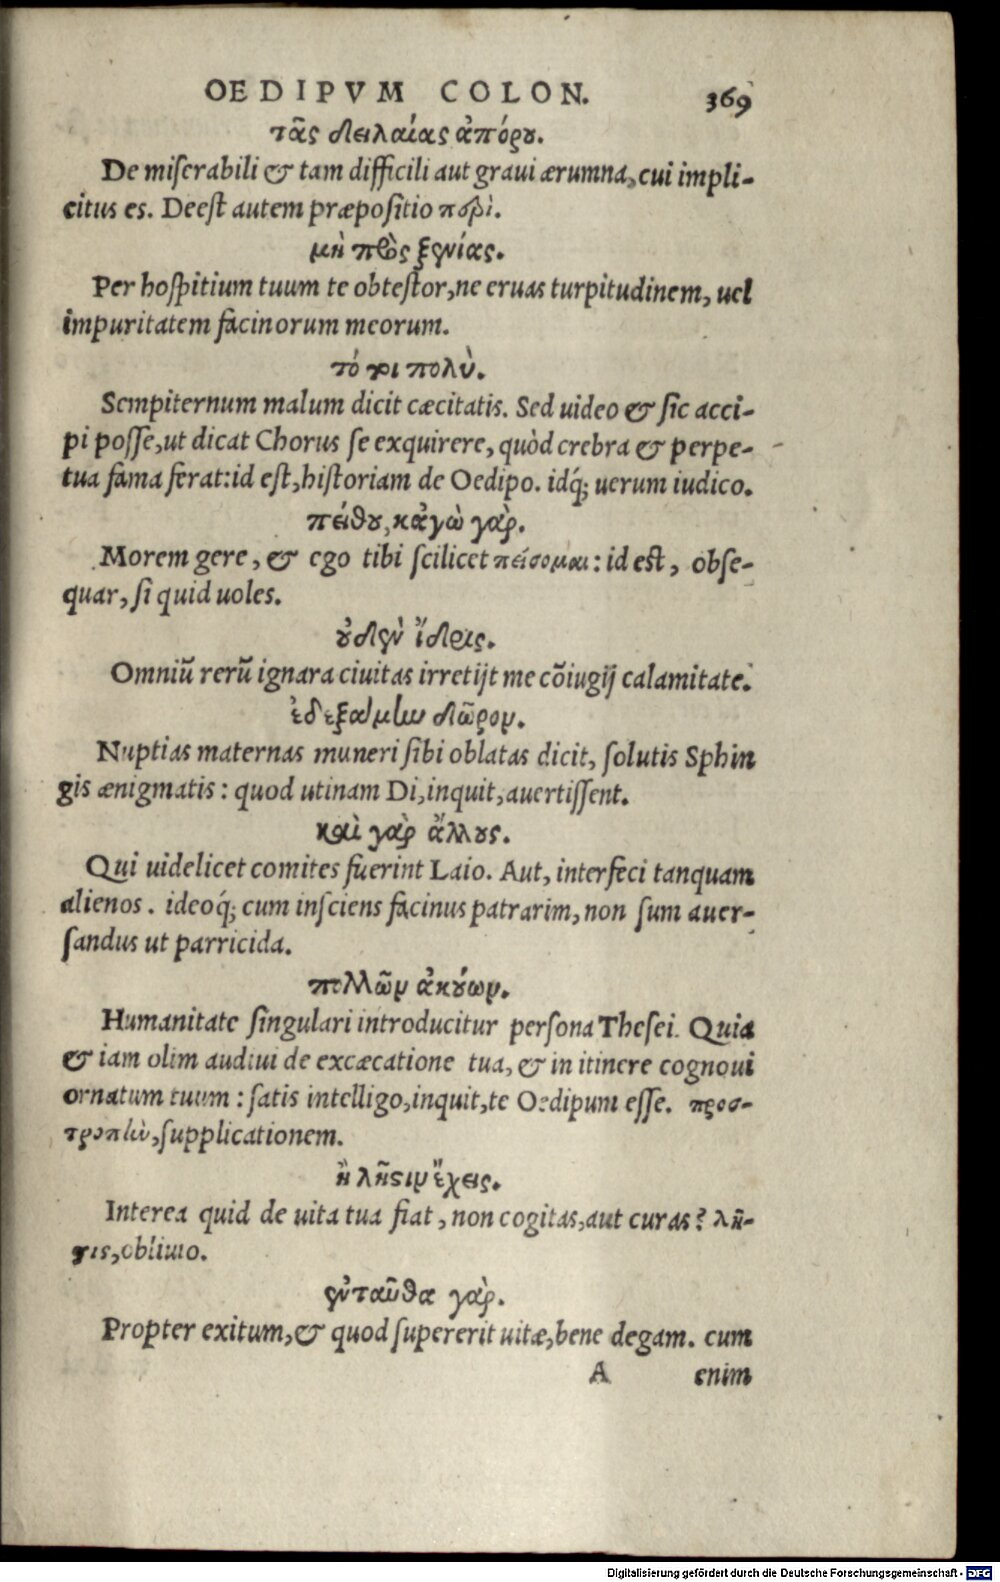 OEDIPVM COLON. 369
τᾶς δειλαίας ἀπόρου.
De miserabili & tam difficili aut graui ærumna, cui impli-
citus es. Deest autem præpositio περὶ.
μὴ πρὸς ξενίας.
Per hospitium tuum te obtestor, ne eruas turpitudinem, uel
impuritatem facinorum meorum.
τό τοι πολὺ.
Sempiternum malum dicit cæcitatis. Sed uideo & sic acci-
pi posse, ut dicat Chorus se exquirere, quòd crebra & perpe-
tua fama ferat: id est, historiam de Oedipo. idq́; uerum iudico.
πείθου, κἀγὼ γὰρ.
Morem gere, & ego tibi scilicet πείσομαι: id est, obse-
quar, si quid uoles.
οὐδὲν ἴδρις.
Omniū rerū ignara ciuitas irretijt me cōiugij calamitate.
ἐδεξάμην δῶρον.
Nuptias maternas muneri sibi oblatas dicit, solutis Sphin
gis ænigmatis: quod utinam Di, inquit, auertissent.
καὶ γὰρ ἄλλους.
Qui uidelicet comites fuerint Laio. Aut, interfeci tanquam
alienos. ideoq́; cum insciens facinus patrarim, non sum auer-
sandus ut parricida.
πολλῶν ἀκούων.
Humanitate singulari introducitur persona Thesei. Quia
& iam olim audiui de excæcatione tua, & in itinere cognoui
ornatum tuum: satis intelligo, inquit, te Oedipum esse. προσ-
τροπὴν, supplicationem.
ἢ λῆστιν ἔχεις.
Interea quid de uita tua fiat, non cogitas, aut curas? λῆ-
στις, obliuio.
ἐνταῦθα γὰρ.
Propter exitum, & quod supererit uitæ, bene degam. cum
A enim
Digitalisierung gefördert durch die Deutsche Forschungsgemeinschaft - DFG